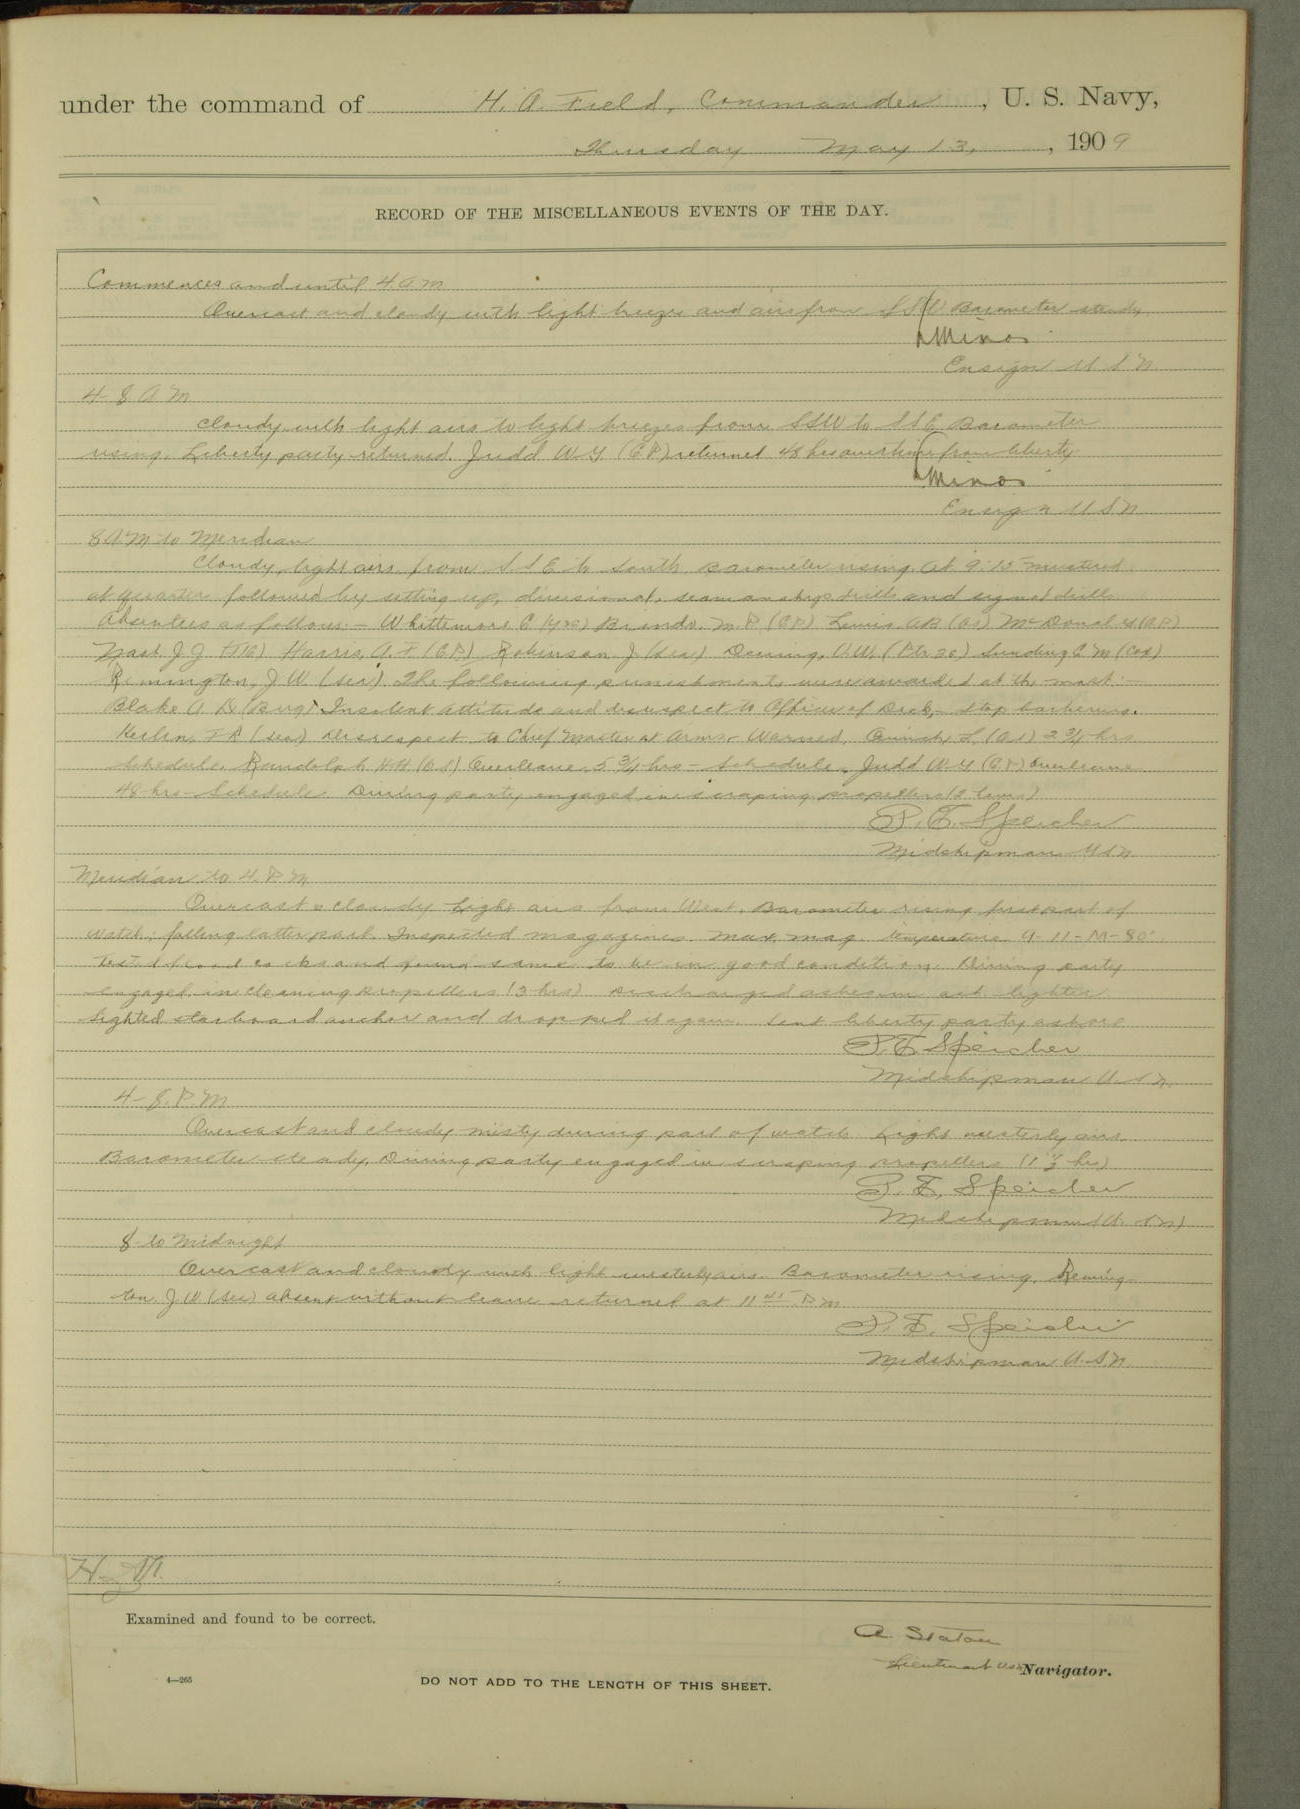 under the command of H. A. Field, Commander, U. S. Navy,
Thursday May 13, 1909
RECORD OF THE MISCELLANEOUS EVENTS OF THE DAY.
Commences and until 4 a m
Overcast and cloudy with light breezes and airs from SSW Barometer steady
Minor
Ensign U S N
4-8 A M
Cloudy with light airs to light breezes from SSW to SSE Barometer
rising. Liberty party returned. Judd W. Y (C.P.) returned 48 hrs overtime from liberty
Minor
Ensign U S N
8 AM to Meridian
Cloudy, light airs from SSE to South. Barometer rising. At 9:15 mustered
at quarters followed by setting up, divisional, seamanship drills and signal drills
Absentees as follows:- Whittemore C Brando. M. P. (C.P.) Lewis AB (O.S) McDonald
J J Harris, A. (C.P.) Robinson J (sea) Deming, A.W. Sunding C M (Cox)
Remington, J W (sea). The following punishments were awarded at the mast:-
Blake A (Bug) Insolent attitude and disrespect to Officer of Deck,
(sea) Disrespect to Chief Master at Arms - Warned. (O.S) 2 3/4 hrs
Schedule. Randolph H.H (O.S) Overleave 5 3/4 hrs - Schedule. Judd W Y (C.P) Overleave
48 hrs - Schedule. Diving party engaged in scraping propellers (2 hours)
P. E. Speicher
Midshipman USN
Meridian to 4 P M
Overcast & cloudy Light airs from West. Barometer rising first part of
watch; falling latter part. Inspected magazines. Max. mag. temperature 9-11-M-80°.
Tested flood cocks and found same to be in good condition. Diving party
engaged in cleaning propellers (3 hrs) Discharged ashes in ash lighter.
Sighted starboard anchor and dropped it again. Sent liberty party ashore
P. E. Speicher
Midshipman U.S.N.
4-8. P. M
Overcast and cloudy misty during part of watch Light westerly airs.
Barometer steady, Diving party engaged in scraping propellers (1 1/2 hrs)
P. E. Speicher
Midshipman U.S.N
8 to Midnight
Overcast and cloudy with light westerly airs. Barometer rising, Reming-
ton. J W (sea) absent without leave returned at 11 45 P M
P. E. Speicher
Midshipman U.S.N.
Examined and found to be correct.
A. Staton
Lieutenant USN Navigator.
4—265
DO NOT ADD TO THE LENGTH OF THIS SHEET.